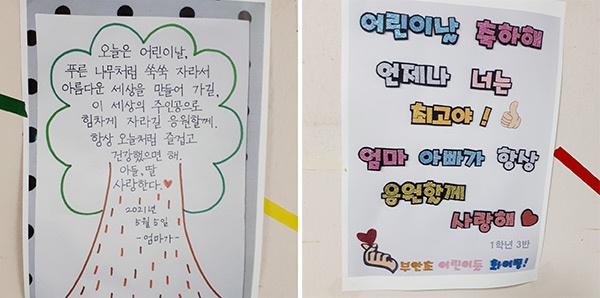 오늘은 어린이날,
푸른 나무처럼 쑥쑥 자라서
아름다운 세상을 만들어 가길,
이 세상의 주인공으로
힘차게 자라길 응원할께.
항상 오늘처럼 즐겁고
건강했으면 해.
아들, 딸
사랑한다.
2021년
5월 5일
-엄마가-
어린이날 축하해
언제나 너는
최고야!
엄마 아빠가 항상
응원할께
사랑해
1학년 3반
부안초 어린이들 화이팅!